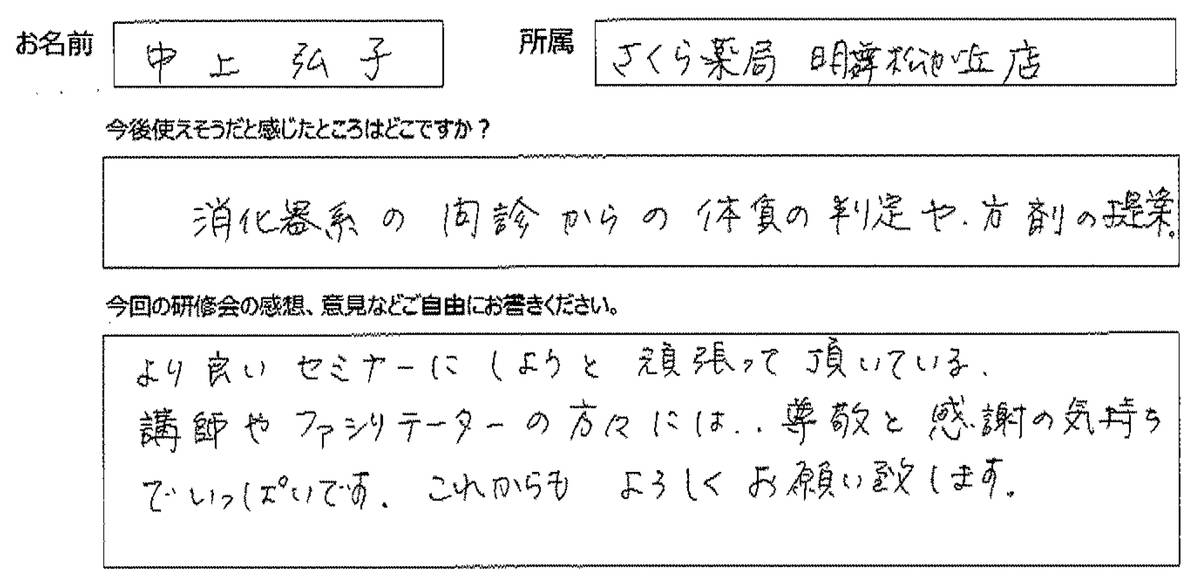 お名前 中上 弘子 所属 さくら薬局 明舞松が丘店
今後使えそうだと感じたところはどこですか?
消化器系の問診からの体質の判定や、方剤の提案。
今回の研修会の感想、意見などご自由にお書きください。
より良いセミナーにしようと頑張って頂いている、
講師やファシリテーターの方々には、、尊敬と感謝の気持ち
でいっぱいです。これからも よろしくお願い致します。